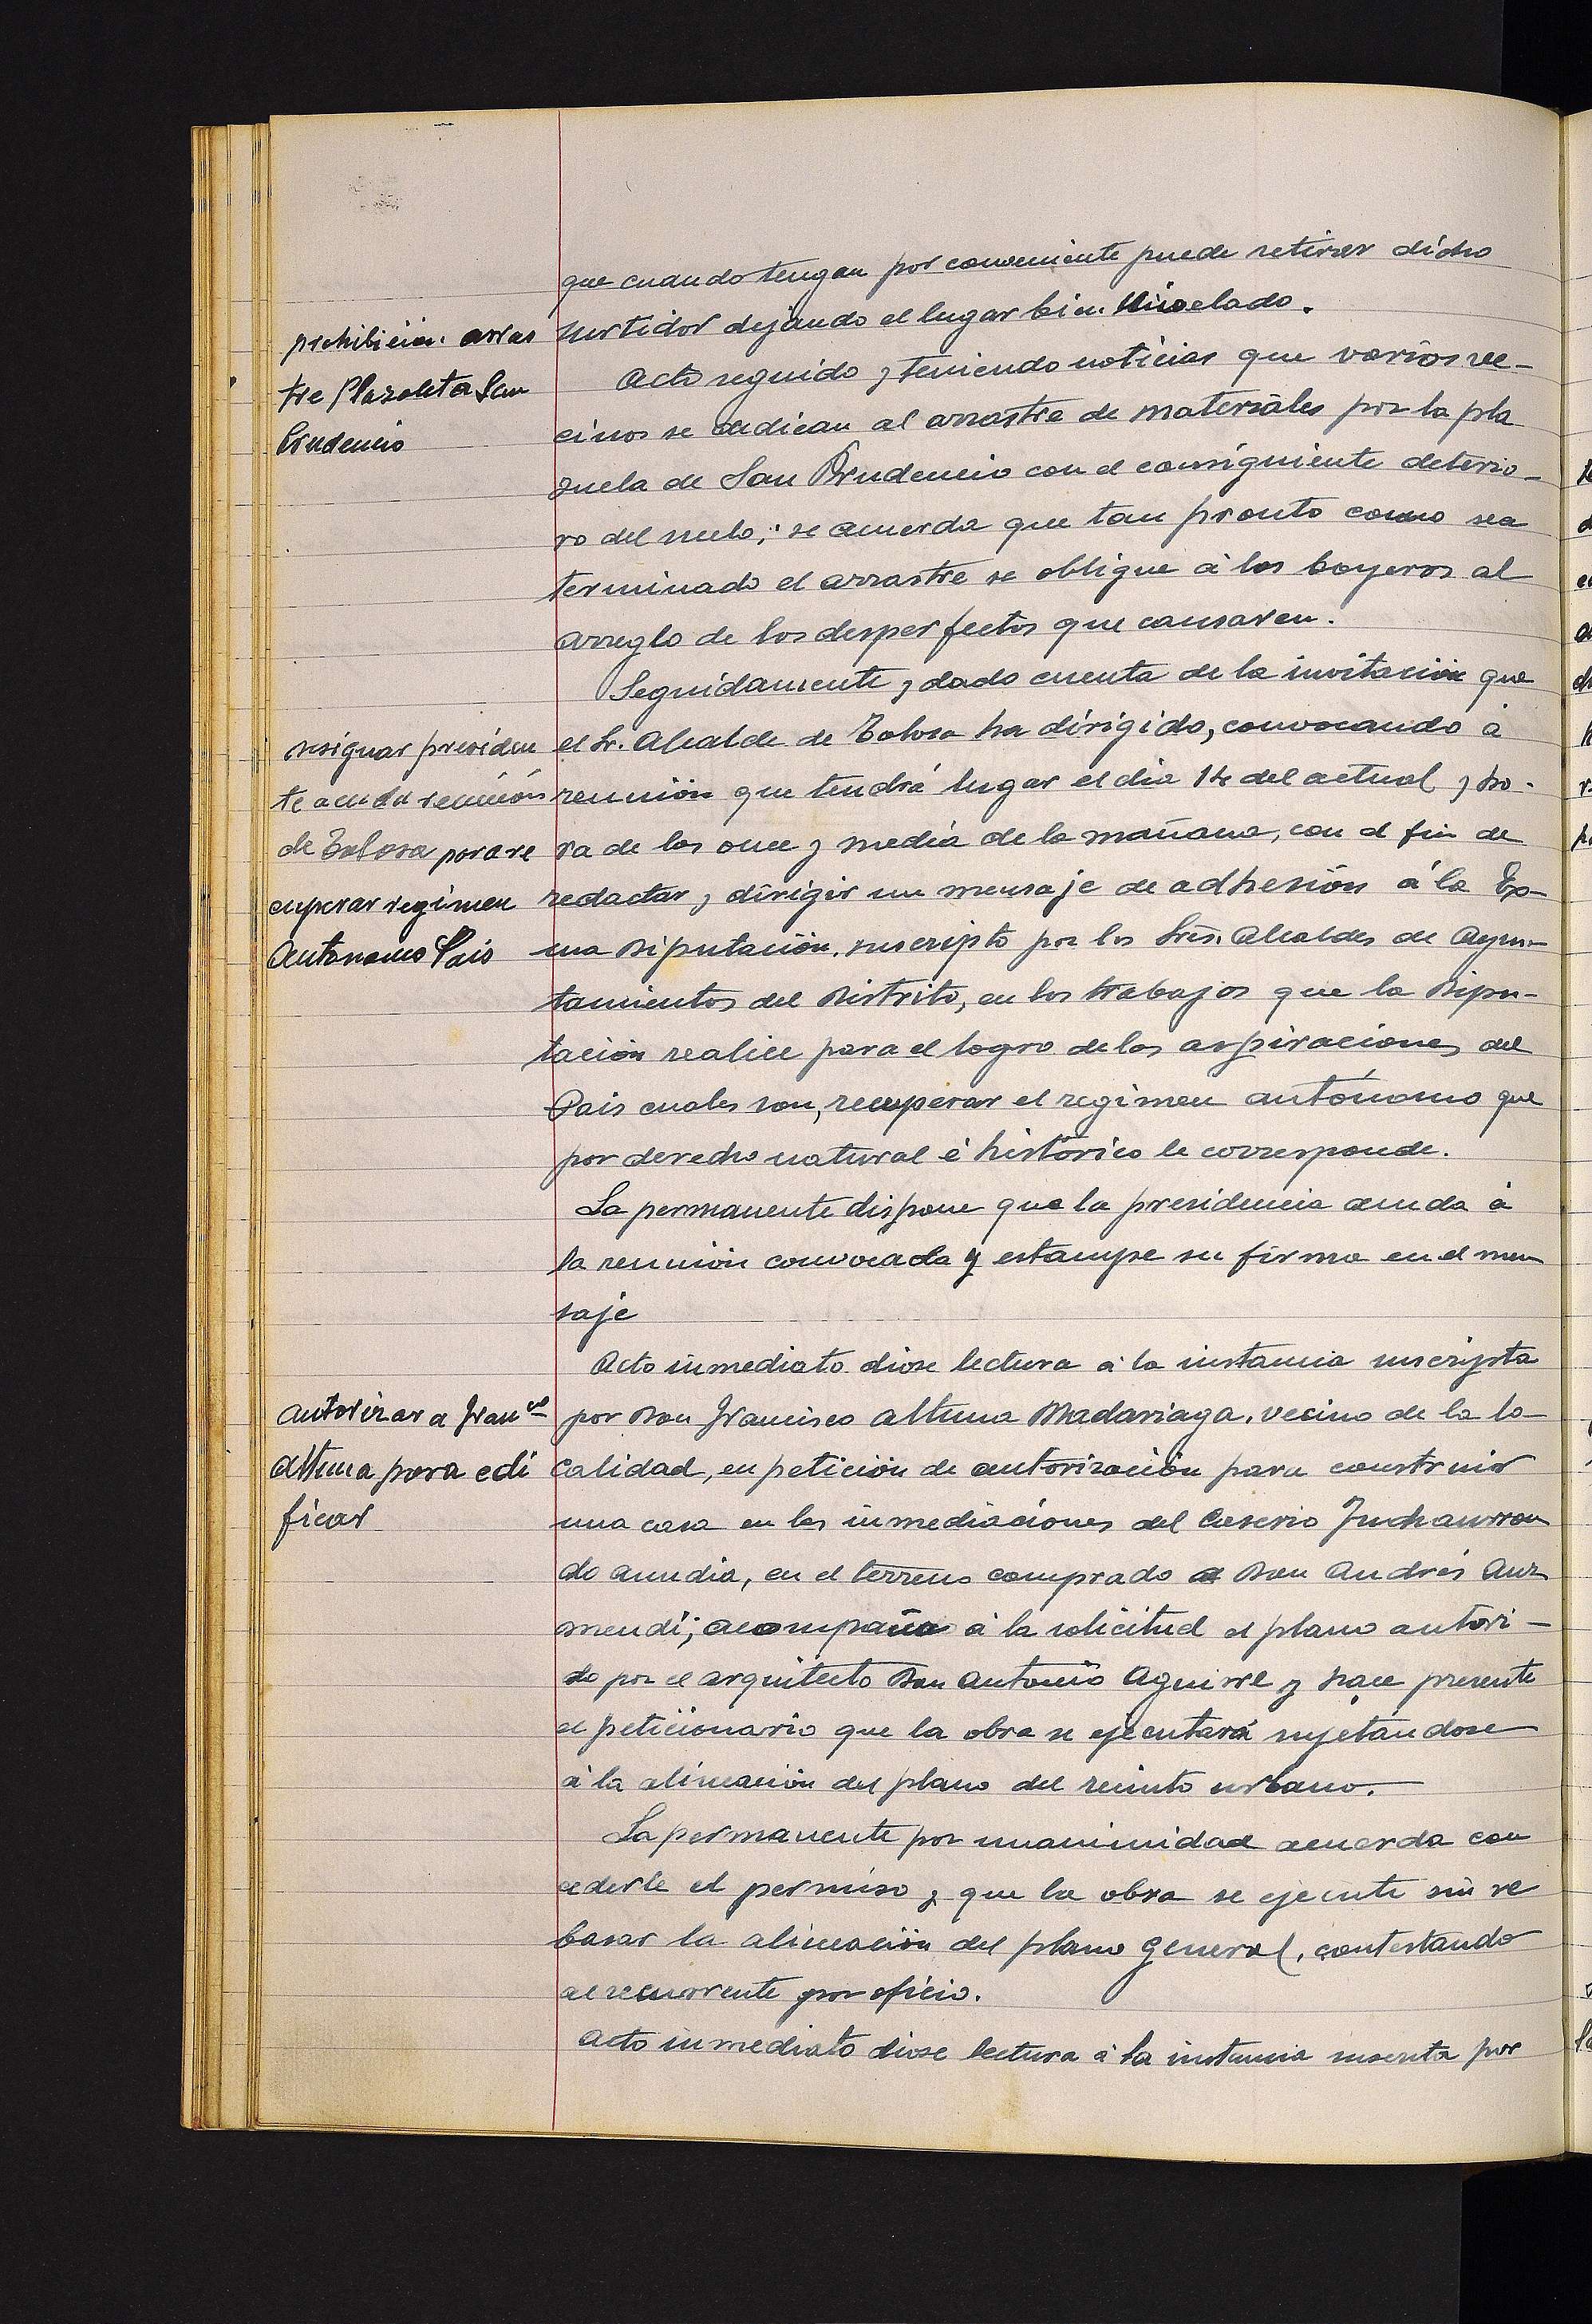 que cuando tengan por conveniente puede retirar dicho
surtidor dejando el lugar bien nivelado.
prohibición arras
tre Plazoleta San
Prudencio
Acto seguido y teniendo noticias que varios ve-
cinos se dedican al arrastre de materiales por la pla
zuela de San Prudencio con el consiguiente deterio-
ro del suelo; se acuerda que tan pronto como sea
terminado el arrastre se obligue á los boyeros al
arreglo de los desperfectos que causaren.
Seguidamente y dado cuenta de la invitación que
presiden
te acuda reunión
de Tolosa para re
cuperar regimen
Autonomo Pais
el Sr. Alcalde de Tolosa ha dirigido, convocando á
reunión que tendrá lugar el dia 14 del actual y ho-
ra de las once y media de la mañana, con el fin de
redactar y dirigir un mensaje de adhesión á la Ex-
ma Diputación, suscripto por los Sres. Alcaldes de Ayun-
tamientos del Distrito, en los trabajos que la Dipu-
tación realice para el logro de las aspiraciones del
Pais cuales son, recuperar el regimen autónomo que
por derecho natural é histórico le corresponde.
La permanente dispone que la presidencia acuda á
la reunión convocada y estampe su firma en el men
saje
Acto inmediato diose lectura á la instancia suscripta
autorizar a Fran co
Altuna para edi
ficar
por Don Francisco Altuna Madariaga, vecino de la lo-
calidad, en petición de autorización para construir
una casa en las inmediaciones del Caserio Inchaurron
do aundia, en el terreno comprado a Don Andrés Auz
mendi; acompaña á la solicitud el plano autori-
do por el arquitecto Don Antonio Aguirre y hace presente
el peticionario que la obra se ejecutará sujetandose
á la alineación del plano del recinto urbano.
La permanente por unanimidad acuerda con
cederle el permiso y que la obra se ejecute sin re
basar la alineación del plano general, contestando
al recurrente por oficio.
Acto inmediato diose lectura á la instancia suscrita por